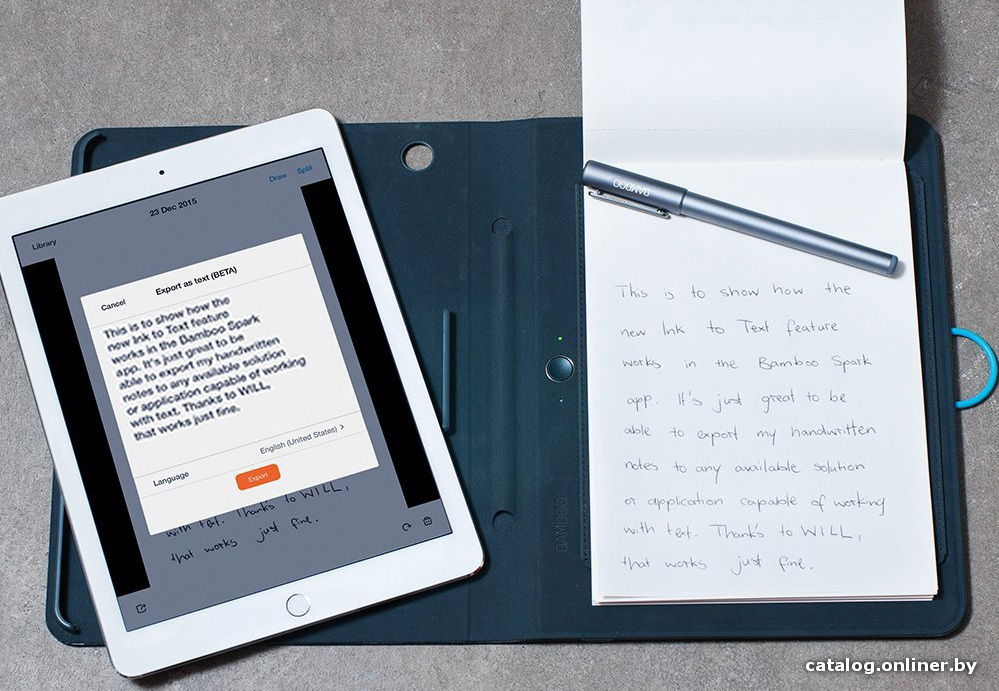 Draw Split
23 Dec 2015
Library
Cancel Export as text (BETA)
This is to show how the
new Ink to Text feature
works in the Bamboo Spark
app. It's just great to be
able to export my handwritten
notes to any available solution
or application capable of working
with text. Thanks to WILL,
that works just fine.
Language English (United States) >
Export
with text. Thanks to WILL,
that works just fine.
BAMBOO
BAMBOO
This is to show how the
new Ink to Text feature
works in the Bamboo Spark
app. It's just great to be
able to export my handwritten
notes to any available solution
or application capable of working
with text. Thanks to WILL,
that works just fine.
catalog.onliner.by